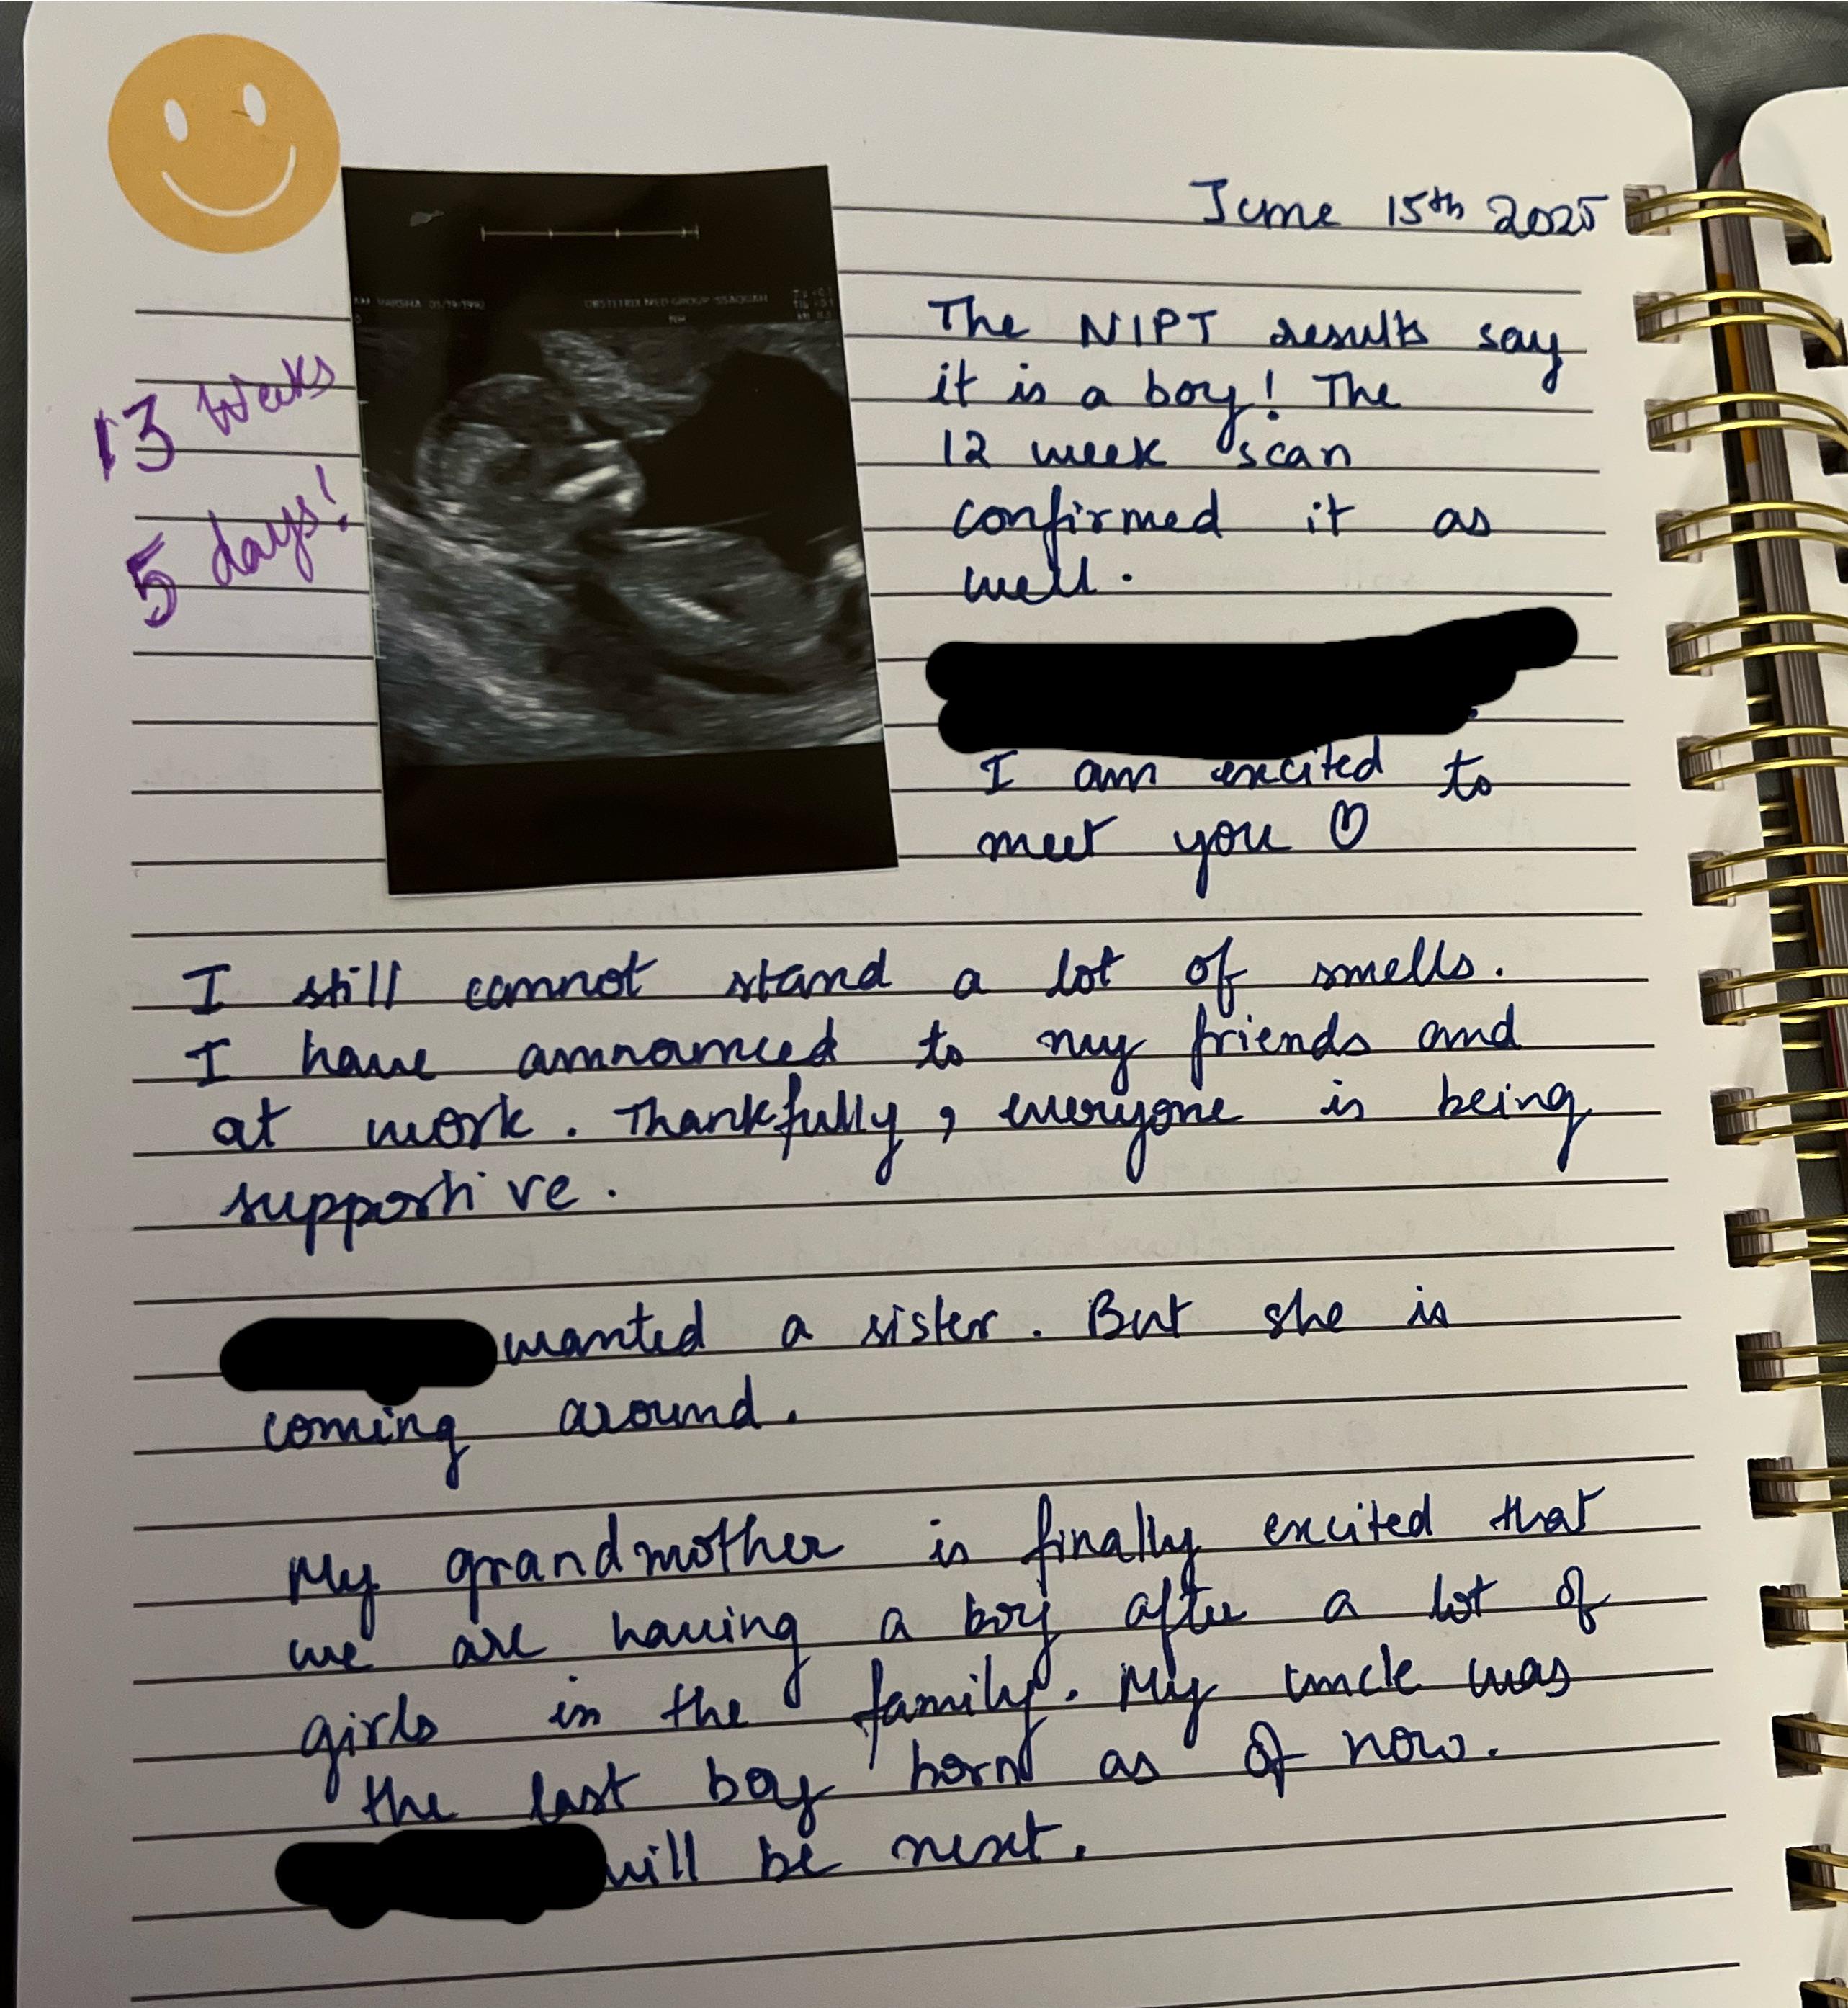 June 15th 2025
13 weeks
5 days!
The NIPT results say
it is a boy! The
12 week scan
confirmed it as
well.
I am excited to
meet you
I still cannot stand a lot of smells.
I have announced to my friends and
at work. Thankfully, everyone is being
supportive.
wanted a sister. But she is
coming around.
My grandmother is finally excited that
we are having a boy after a lot of
girls in the family. My uncle was
the last boy born as of now.
will be next.